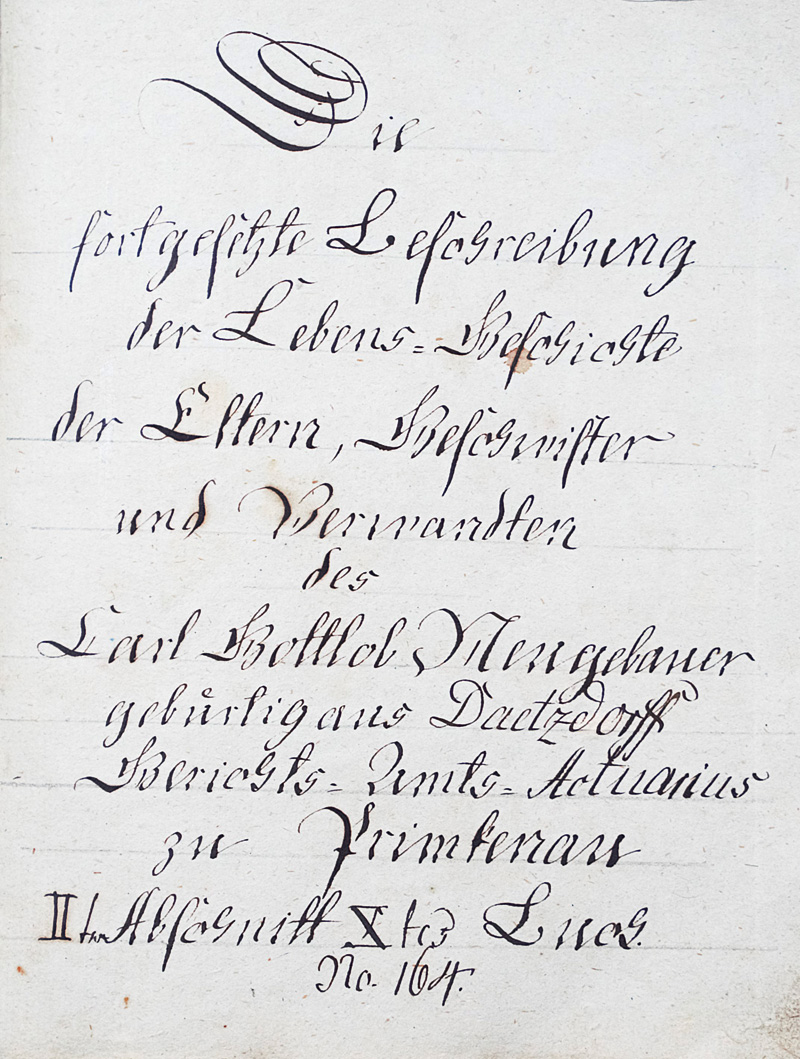 Die
fortgesetzte Beschreibung
der Lebens=Geschichte
der Eltern, Geschwister
und Verwandten
des
Carl Gottlob Neugebauer
gebürtig aus Daetzdorff
Gerichts=Amts=Actuarius
zu Primkenau
IIter Abschnitt Xtes Buch.
No. 164.